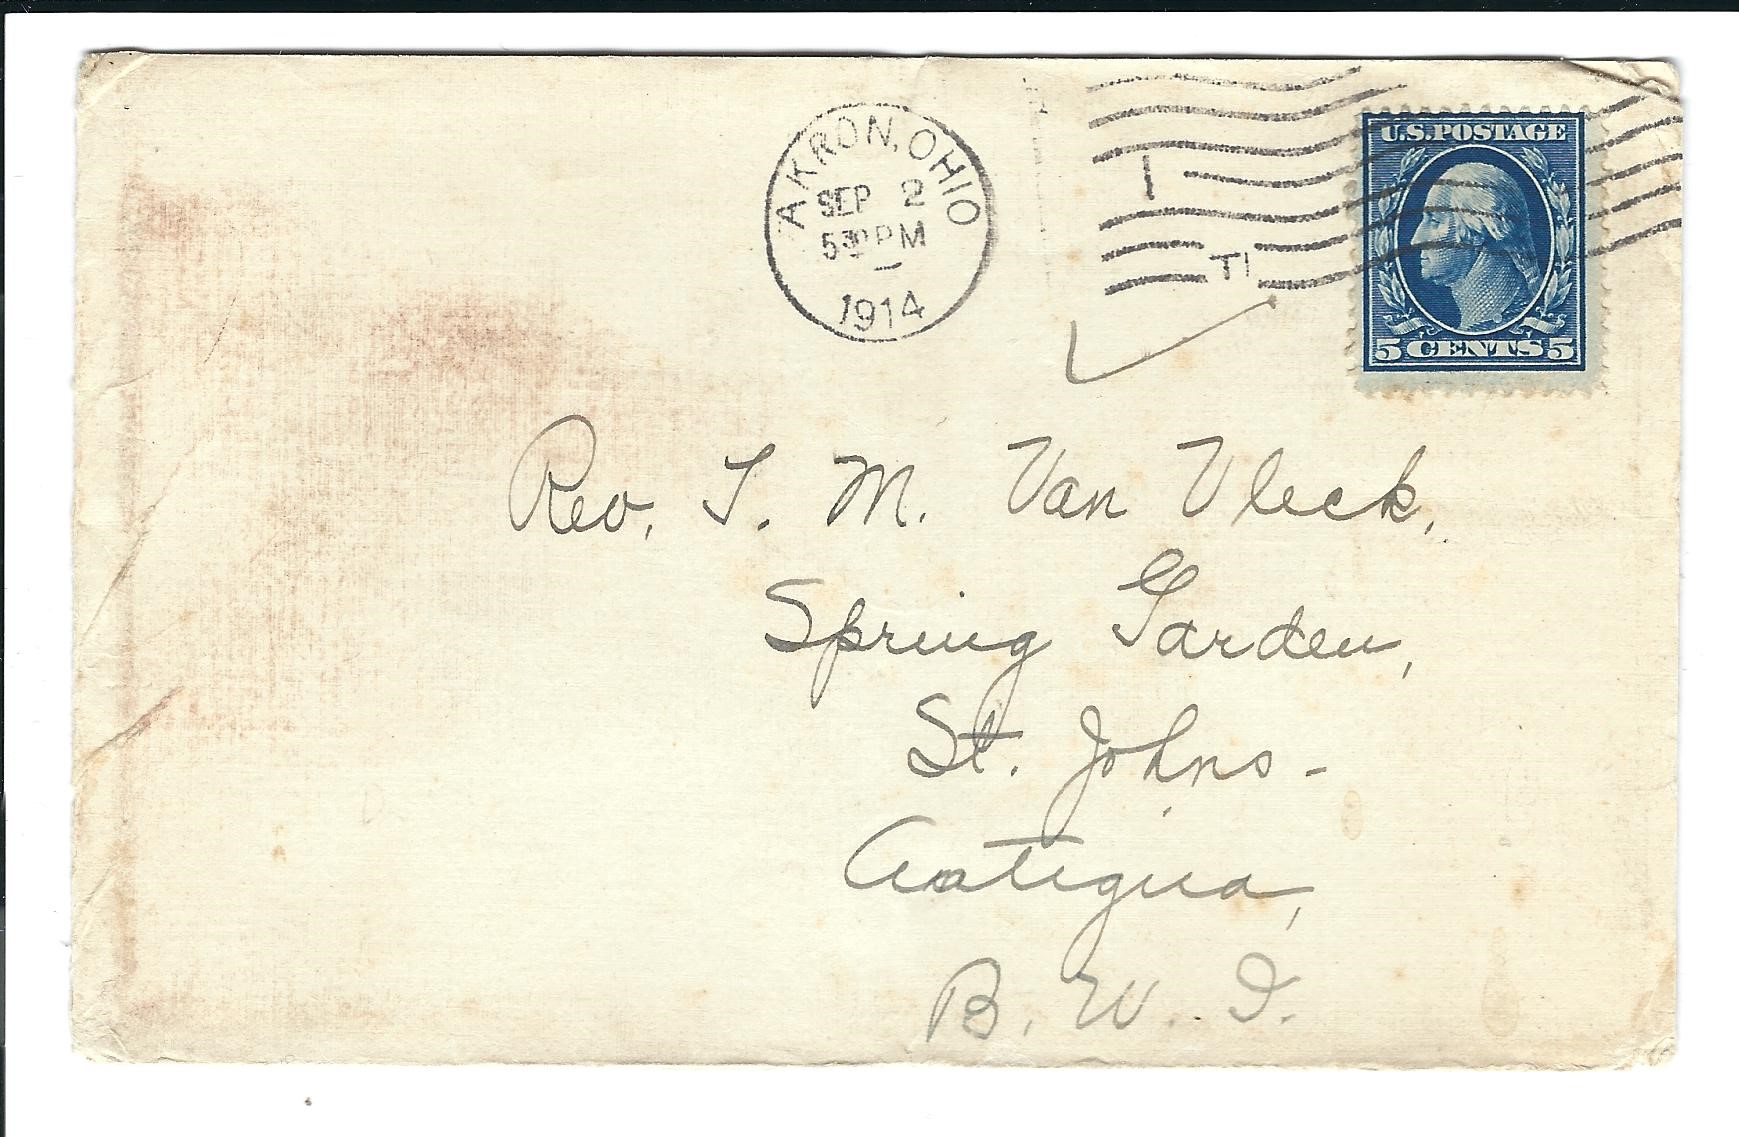 AKRON, OHIO
SEP 2
5 30 PM
1914
1
TI
U.S. POSTAGE
5 CENTS 5
Rev. T. M. Van Vleck,
Spring Garden,
St. Johns -
Antigua,
B. W. I.